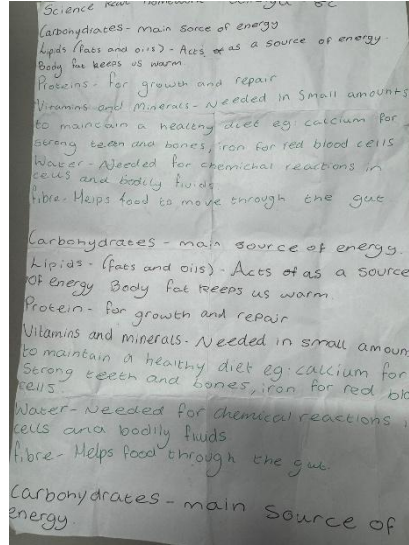 Science
Carbohydrates - main sorce of energy
Lipids (fats and oils) - Acts as a source of energy.
Body fat keeps us warm
Proteins - for growth and repair
Vitamins and Minerals - Needed in small amounts
to maintain a healthy diet eg: calcium for
strong teeth and bones, iron for red blood cells
Water - Needed for chemichal reactions in
cells and bodily fluids
fibre - Helps food to move through the gut
Carbohydrates - main source of energy.
Lipids - (fats and oils) - Acts as a source
of energy Body fat keeps us warm.
Protein - for growth and repair
Vitamins and minerals - Needed in small amoun
to maintain a healthy diet eg: calcium for
Strong teeth and bones, iron for red blo
cells.
Water - Needed for chemical reactions i
cells and bodily fluids
fibre - Helps food through the gut.
Carbohydrates - main source of
energy.